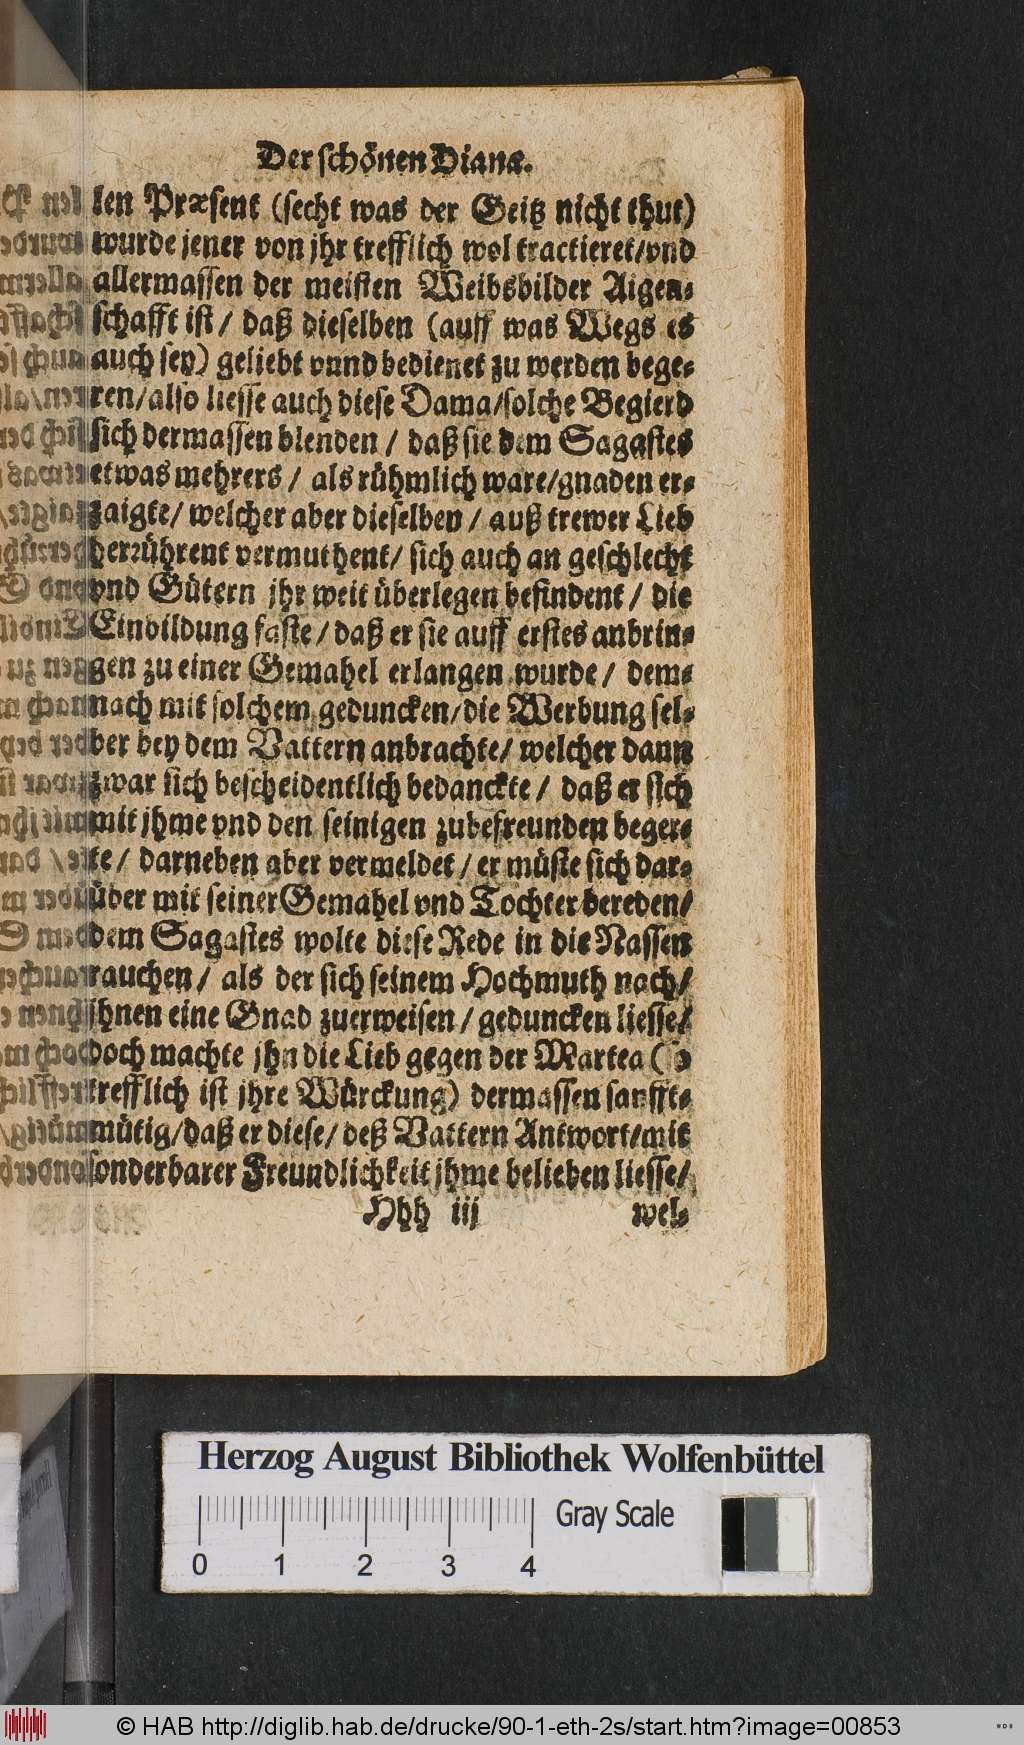 Der schönen Dianæ.
len Præsent (secht was der Geitz nicht thut)
wurde jener von jhr trefflich wol tractieret/vnd
allermassen der meisten Weibsbilder Aigen-
schafft ist / daß dieselben (auff was Wegs es
auch sey) geliebt vnnd bedienet zu werden bege-
ren/also liesse auch diese Dama/solche Begierd
sich dermassen blenden / daß sie dem Sagastes
etwas mehrers / als rühmlich ware/gnaden er-
zaigte/ welcher aber dieselben / auß trewer Lieb
herrührent vermuthent/ sich auch an geschlecht
vnd Gütern jhr weit überlegen befindent / die
Einbildung faste / daß er sie auff erstes anbrin-
gen zu einer Gemahel erlangen wurde / dem-
nach mit solchem geduncken/die Werbung sel-
ber bey dem Vattern anbrachte/ welcher dann
zwar sich bescheidentlich bedanckte / daß er sich
mit jhme vnd den seinigen zubefreunden beger-
te / darneben aber vermeldet / er müste sich dar-
über mit seiner Gemahel vnd Tochter bereden/
dem Sagastes wolte diese Rede in die Nassen
rauchen / als der sich seinem Hochmuth nach/
ihnen eine Gnad zuerweisen / geduncken liesse/
doch machte jhn die Lieb gegen der Martea (so
trefflich ist jhre Würckung) dermassen sanfft-
mütig/daß er diese/ deß Vattern Antwort/mit
sonderbarer Freundlichkeit jhme belieben liesse/
Hhh iij wel-
Herzog August Bibliothek Wolfenbüttel
Gray Scale
0 1 2 3 4
© HAB http://diglib.hab.de/drucke/90-1-eth-2s/start.htm?image=00853